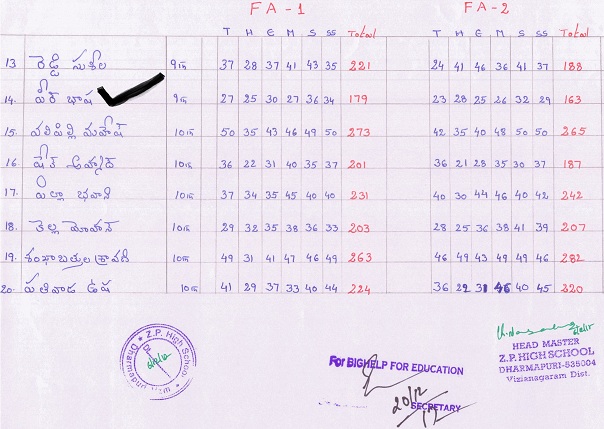 FA - 1 FA - 2
T H E M S SS Total T H E M S SS Total
13 రెడ్డి సుశీల 9th 37 28 37 41 43 35 221 24 41 46 36 41 37 188
14. పీర్ భాష 9th 27 25 30 27 36 34 179 23 28 25 26 32 29 163
15. వలిపిల్లి మహేష్ 10th 50 35 43 46 49 50 273 42 35 40 48 50 50 265
16 షేక్ 10th 36 22 31 40 35 37 201 36 21 28 35 30 37 187
17. పిల్లా భవాని 10th 37 34 35 45 40 40 231 40 30 44 46 40 42 242
18. తెల్ల మోహన్ 10th 29 32 35 38 36 33 203 28 25 36 38 41 39 207
19. శంఖాబత్తుల శ్రావణి 10th 49 31 41 47 46 49 263 46 49 43 49 49 46 282
20. పతివాడ ఉష 10th 41 29 37 33 40 44 224 36 22 31 46 40 45 220
Z.P. High School
Dharmapuri
For BIGHELP FOR EDUCATION
20/12
SECRETARY
HEAD MASTER
Z.P. HIGH SCHOOL
DHARMAPURI-535004
Vizianagaram Dist.